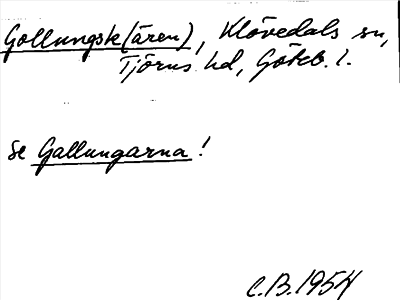 Gollungsk(ären), Klövedals sn,
Tjörns hd, Göteb. l.
Se Gallungarna!
C.B. 1954